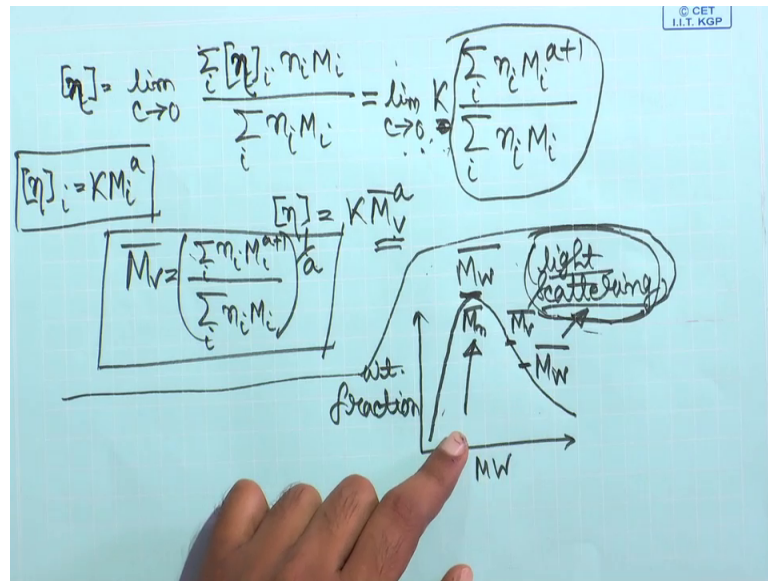 © CET
I.I.T. KGP
[η] = lim c→0 Σi [η]i niMi / Σi niMi = lim c→0 K Σi niMi^(a+1) / Σi niMi
[η]i = KMi^a
[η] = K M̅v^a
M̅v = (Σi niMi^(a+1) / Σi niMi)^(1/a)
M̅w
light
scattering
M̅n M̅v
M̅w
wt.
fraction
MW